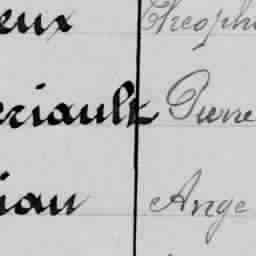 eux Théoph
eriault Pierre
iau Ange